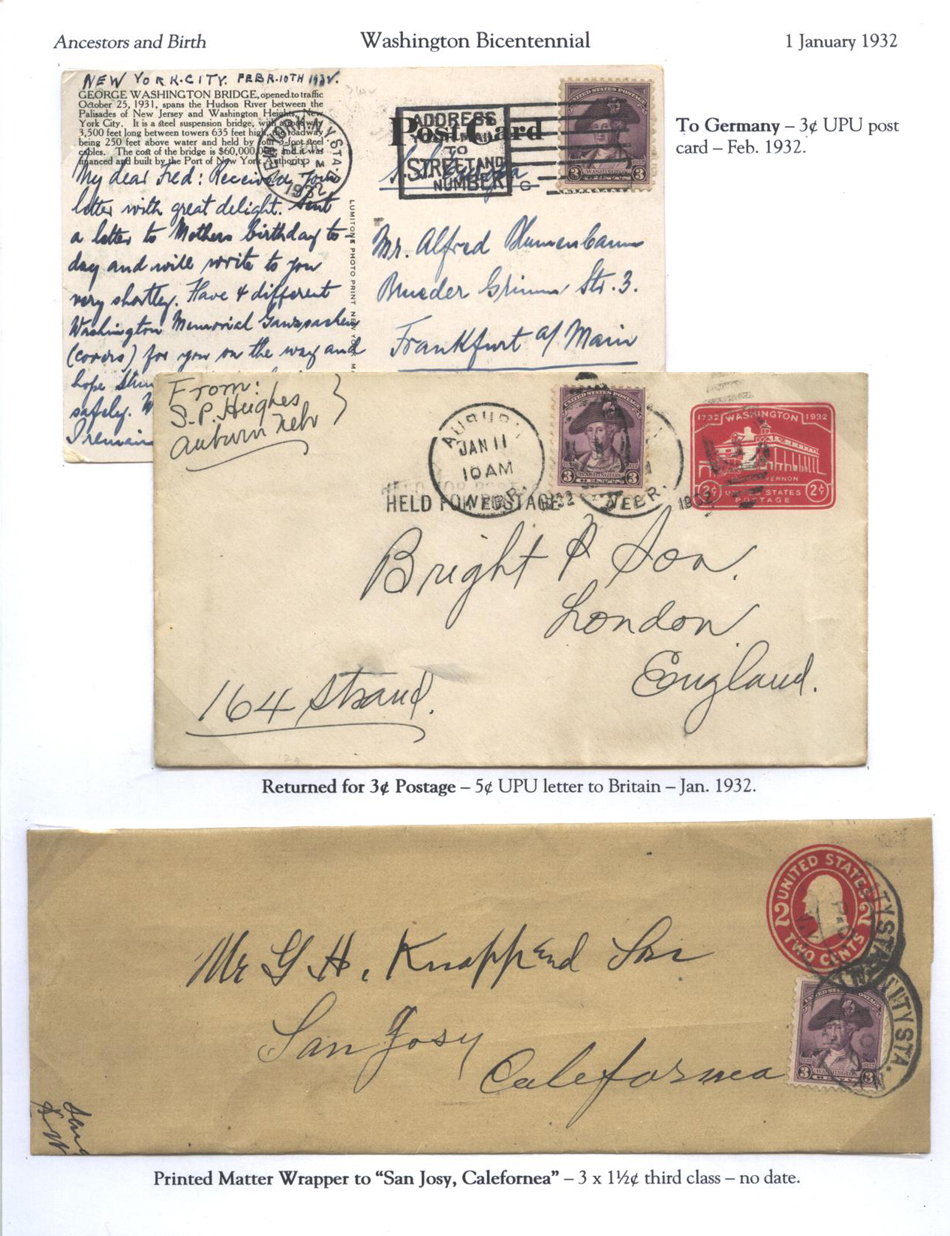 Ancestors and Birth
Washington Bicentennial
1 January 1932
NEW YORK. CITY. FEBR. 10TH 1932.
GEORGE WASHINGTON BRIDGE, opened to traffic
October 25, 1931, spans the Hudson River between the
Palisades of New Jersey and Washington Heights, New
York City. It is a steel suspension bridge, with a
3,500 feet long between towers 635 feet high, roadway
being 250 feet above water and held by four 3-foot steel
cables. The cost of the bridge is $60,000,000 and it was
financed and built by the Port of New York Authority.
My dear Fred: Received your
letter with great delight. Sent
a letter to Mothers birthday to
day and will write to you
very shortly. Have 4 different
Washington Memorial
(covers) for you on the way and
hope
safely.
I remain
LUMITONE PHOTO PRINT
Post Card
ADDRESS
MAIL
TO
STREET AND
NUMBER
1932
3 3
Mr. Alfred Blumenbaum
Brueder Grimm Str. 3.
Frankfurt a/Main
To Germany – 3¢ UPU post
card – Feb. 1932.
From:
S.P. Hughes
Auburn Nebr
AUBURN
JAN 11
10 AM
NEBR.
1932
HELD FOR POSTAGE
UNITED STATES POSTAGE
3 3
NEBR.
1732 WASHINGTON 1932
VERNON
2¢ UNITED STATES 2¢
POSTAGE
Bright & Son.
London
England.
164 Strand.
Returned for 3¢ Postage – 5¢ UPU letter to Britain – Jan. 1932.
UNITED STATES
2 2
TWO CENTS
3 3
TY STA.
Mr G H. Knapp End Son
San Josy
Calefornea
Printed Matter Wrapper to “San Josy, Calefornea” – 3 x 1½¢ third class – no date.